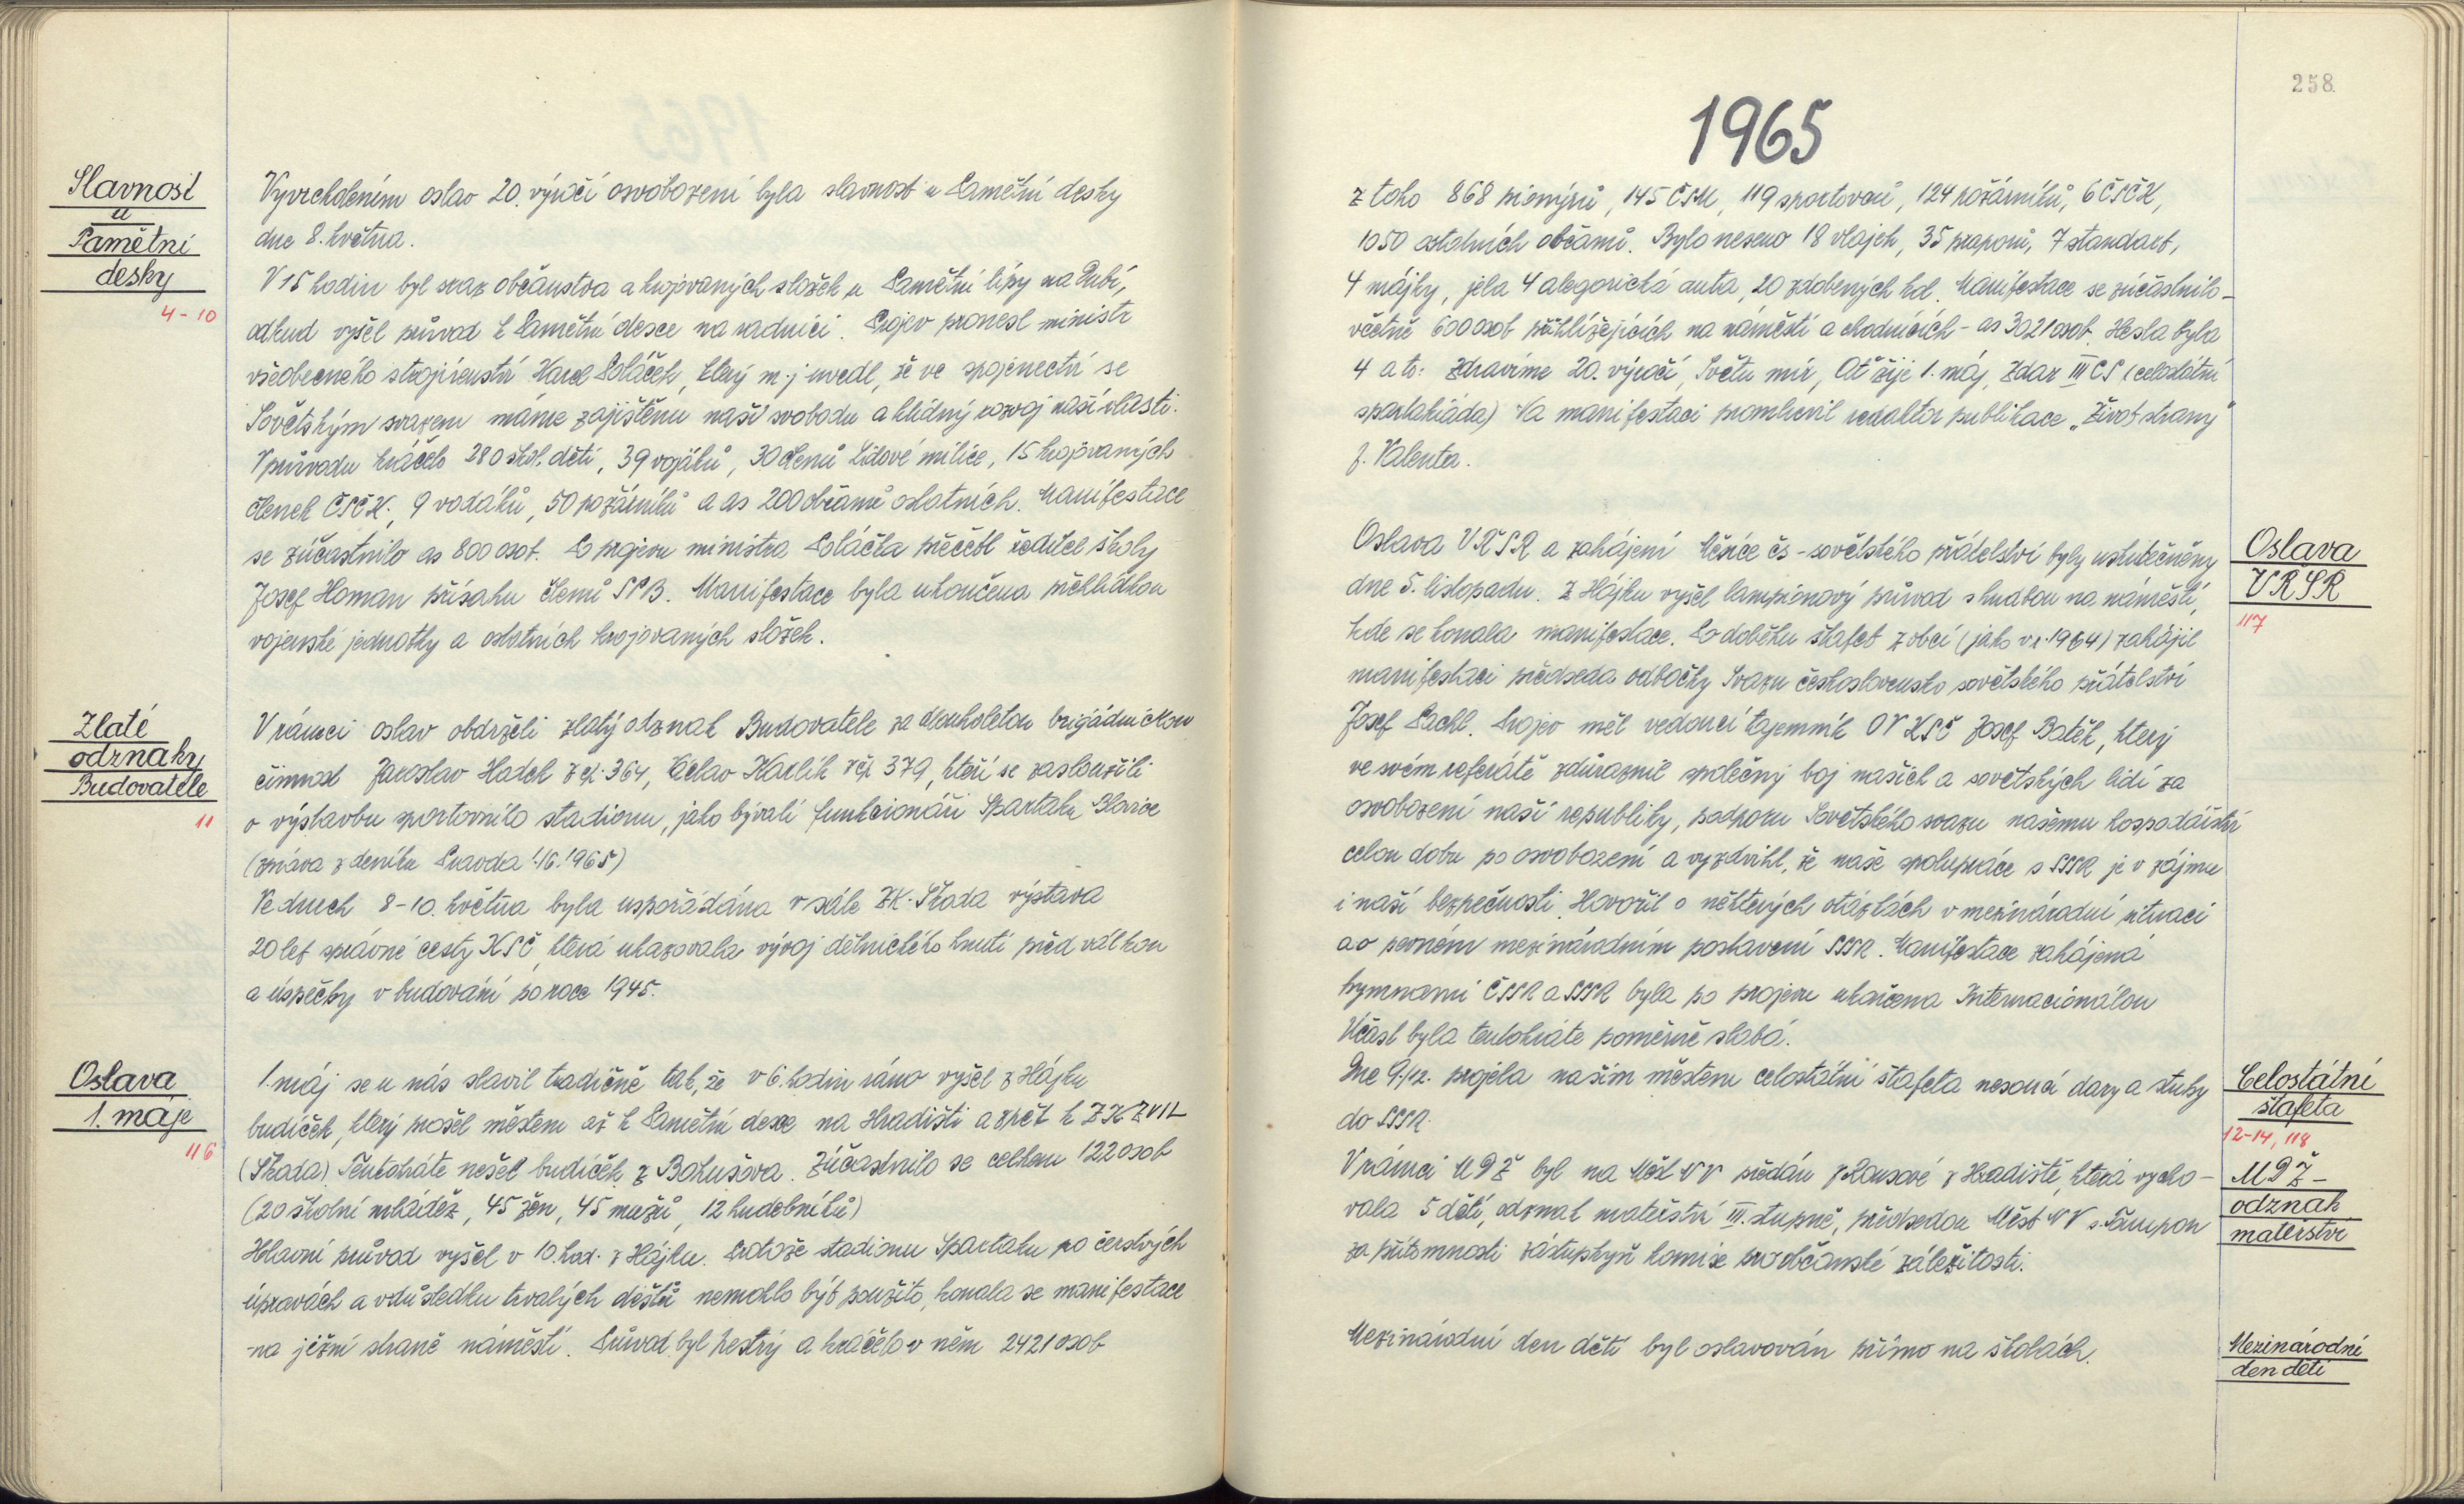 Slavnost
u
Pamětní
desky
4-10
Vyvrcholením oslav 20. výročí osvobození byla slavnost u Pamětní desky
dne 8. května.
V 15 hodin byl sraz občanstva a krojovaných složek u Pamětní lípy na Dubí,
odkud vyšel průvod k Pamětní desce na radnici. Projev pronesl ministr
všeobecného strojírenství Karel Poláček, který m.j uvedl, že ve spojenectví se
Sovětským svazem máme zajištěnu naši svobodu a klidný rozvoj naší vlasti.
V průvodu kráčelo 280 škol. dětí, 39 vojáků, 30 členů Lidové milice, 15 krojovaných
členek ČSČK., 9 vodáků, 50 požárníků a as 200 občanů ostatních. Manifestace
se zúčastnilo as 800 osob. Po projevu ministra Poláčka přečetl ředitel školy
Josef Homan přísahu členů SPB. Manifestace byla ukončena přehlídkou
vojenské jednotky a ostatních krojovaných složek.
Zlaté
odznaky
Budovatele
11
V rámci oslav obdrželi zlatý odznak Budovatele za dlouholetou brigádnickou
činnost Jaroslav Hadek z čp. 364, Václav Karlík čp 379, kteří se zasloužili
o výstavbu sportovního stadionu, jako bývalí funkcionáři Spartaku Blovice
(zpráva z deníku Pravda 1.16.1965)
Ve dnech 8-10. května byla uspořádána v sále ZK-Škoda výstava
20 let správné cesty KSČ, která ukazovala vývoj dělnického hnutí před válkou
a úspěchy v budování po roce 1945.
Oslava
1. máje
116
1. máj se u nás slavil tradičně tak, že v 6. hodin ráno vyšel z Hájku
budíček, který prošel městem až k Pamětní desce na Hradišti a zpět k ZK ZVIL
(Škoda). Tentokráte nešel budíček z Bohušova. Zúčastnilo se celkem 122 osob
(20 školní mládež, 45 žen, 45 mužů, 12 hudebníků)
Hlavní průvod vyšel v 10. hod. z Hájku. Protože stadionu Spartaku po čerstvých
úpravách a vdůsledku trvalých dešťů nemohlo být použito, konala se manifestace
na jižní straně náměstí. Průvod byl pestrý a kráčelo v něm 2421 osob
258
1965
z toho 868 pionýrů, 145 ČSM, 119 sportovců, 124 požárníků, 6 ČSČK,
1050 ostatních občanů. Bylo neseno 18 vlajek, 35 praporů, 7 standart,
4 májky, jela 4 alegorická auta, 20 zdobených kol. Manifestace se zúčastnilo -
včetně 600 osob přihlížejících na náměstí a chodnících - as 3021 osob. Hesla byla
4 a to: Zdravíme 20. výročí, Světu mír, Ať žije 1. máj, Zdar III CS (celostátní
spartakiáda) Na manifestaci promluvil redaktor publikace „Život strany"
J. Valenta.
Oslava
VŘSR
117
Oslava VŘSR a zahájení Měsíce čs-sovětského přátelství byly uskutečněny
dne 5. listopadu. Z Hájku vyšel lampionový průvod s hudbou na náměstí,
kde se konala manifestace. Po doběhu štafet z obcí (jako v r. 1964) zahájil
manifestaci předseda odbočky Svazu československo sovětského přátelství
Josef Pachl. Projev měl vedoucí tajemník OV KSČ Josef Batěk, který
ve svém referátě zdůraznil společný boj našich a sovětských lidí za
osvobození naší republiky, podporu Sovětského svazu našemu hospodářství
celou dobu po osvobození a vyzdvihl, že naše spolupráce s SSSR je v zájmu
i naší bezpečnosti. Hovořil o některých otázkách v mezinárodní situaci
a o pevném mezinárodním postavení SSSR. Manifestace zahájená
hymnami ČSSR a SSSR byla po projevu ukončena Internacionálou
Účast byla tentokráte poměrně slabá.
Celostátní
štafeta
12-14, 118
Dne 9/12. projela naším městem celostátní štafeta nesoucí dary a stuhy
do SSSR.
MDŽ-
odznak
mateřství
V rámci MDŽ byl na Měst NV předán z Hradiště, která vycho-
vala 5 dětí, odznak mateřství III. stupně, předsedou Měst NV s.
za přítomnosti zástupkyň komise pro občanské záležitosti.
Mezinárodní
den dětí
Mezinárodní den dětí byl oslavován přímo na školách.